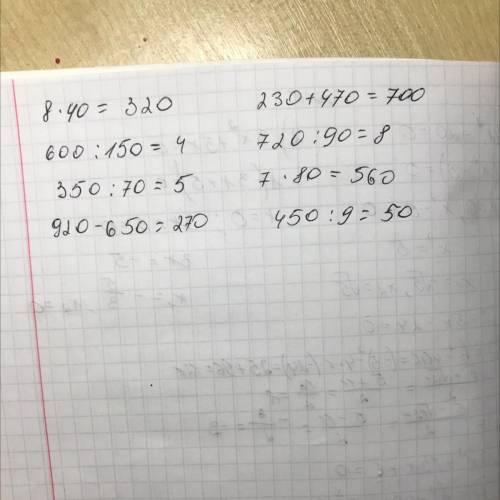 8 · 40 = 320
600 : 150 = 4
350 : 70 = 5
920 - 650 = 270
230 + 470 = 700
720 : 90 = 8
7 · 80 = 560
450 : 9 = 50